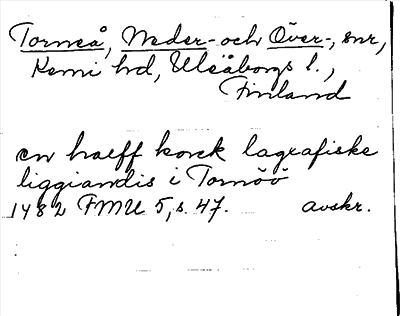 Torneå, Neder- och Över-, snr,
Kemi hd, Uleåborgs l.,
Finland
en haeff korck lagrafiske
liggiandis i Tornöö
1482 FMU 5, s. 47. avskr.